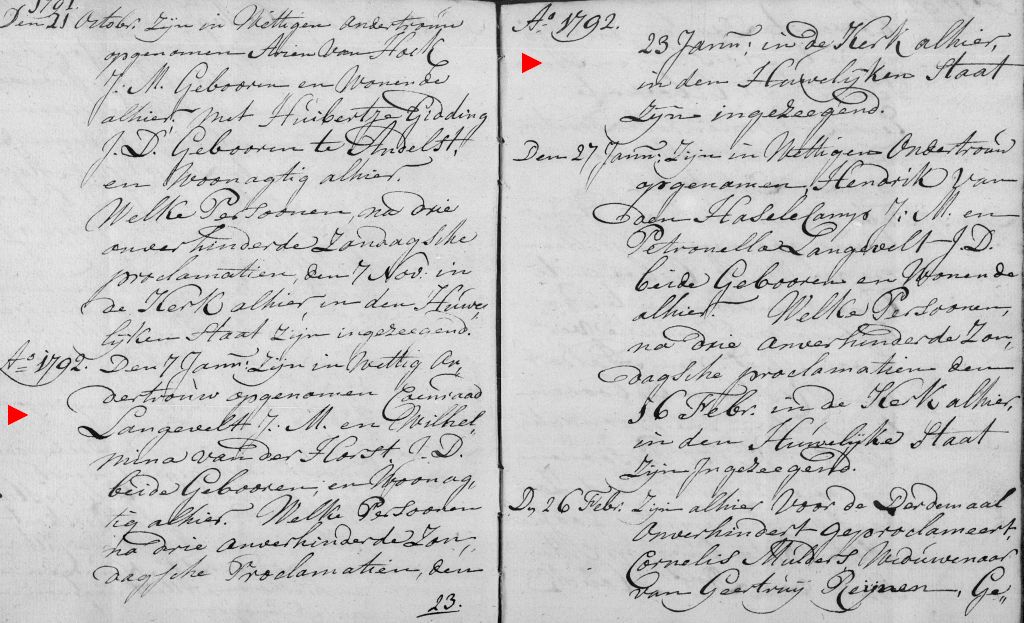 1791.
Den 21 Octobr. Zijn in Wettigen Ondertrouw
opgenomen Arien van Hoek
J: M. Gebooren en Wonende
alhier. met Huibertje Gidding
J. D. Gebooren te Andelst,
en Woonagtig alhier.
Welke Persoonen, na drie
onverhinderde Zondagsche
proclamatien, den 7 Nov: in
de Kerk alhier, in den Huwe„
lijken Staat Zijn ingezeegend.
Ao. 1792. Den 7 Jann: Zijn in Wettig On„
dertrouw opgenomen Coenraad
Langevelt J: M. en Wilhel„
mina van der Horst J. D.
beide Gebooren, en Woonag„
tig alhier. Welke Persoonen
na drie onverhinderde Zon„
dagsche Proclamatien, den
23.
Ao. 1792.
23 Jann: in de Kerk alhier,
in den Huwelijken Staat
Zijn ingezeegend.
Den 27 Jann: Zijn in Wettigen Ondertrouw
opgenomen, Hendrik van
Daen Haselecamp J: M. en
Petronella Langevelt J. D.
beide Gebooren en Wonende
alhier. Welke Persoonen,
na drie onverhinderde Zon„
dagsche proclamatien den
16 Febr. in de Kerk alhier,
in den Huwelijke Staat
Zijn Ingezeegend.
Dn 26 Febr. Zijn alhier voor de Derdemaal
Onverhindert geproclameert,
Cornelis Mulders Weduwenaar
van Geertruij Reijnen, Ge„